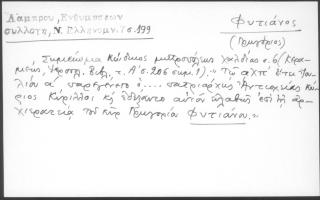 Λάμπρου, Ἐνθυμήσεων
συλλογή, Ν. Ἑλληνομν. 7 σ. 199
Φυτιάνος
(Γρηγόριος)
Σημείωμα Κώδικος μητροπόλεως Χαλδίας σ. 6 (Κερα-
μεύς, Ἱεροσολ. Βιβλ. τ. Α' σ. 206 σημ. 1). "Τῷ αχπ' ἔτει Ἰου-
λίου α' παρεγένετο ὁ .... πατριάρχης Ἀντιοχείας κύ-
ριος Κύριλλος κ' ἐδέξαντο αὐτὸν εὐλαβῶς ἐπὶ τῇ ἀρ-
χιερατείᾳ τοῦ κὺρ Γρηγορίου Φυτιάνου."